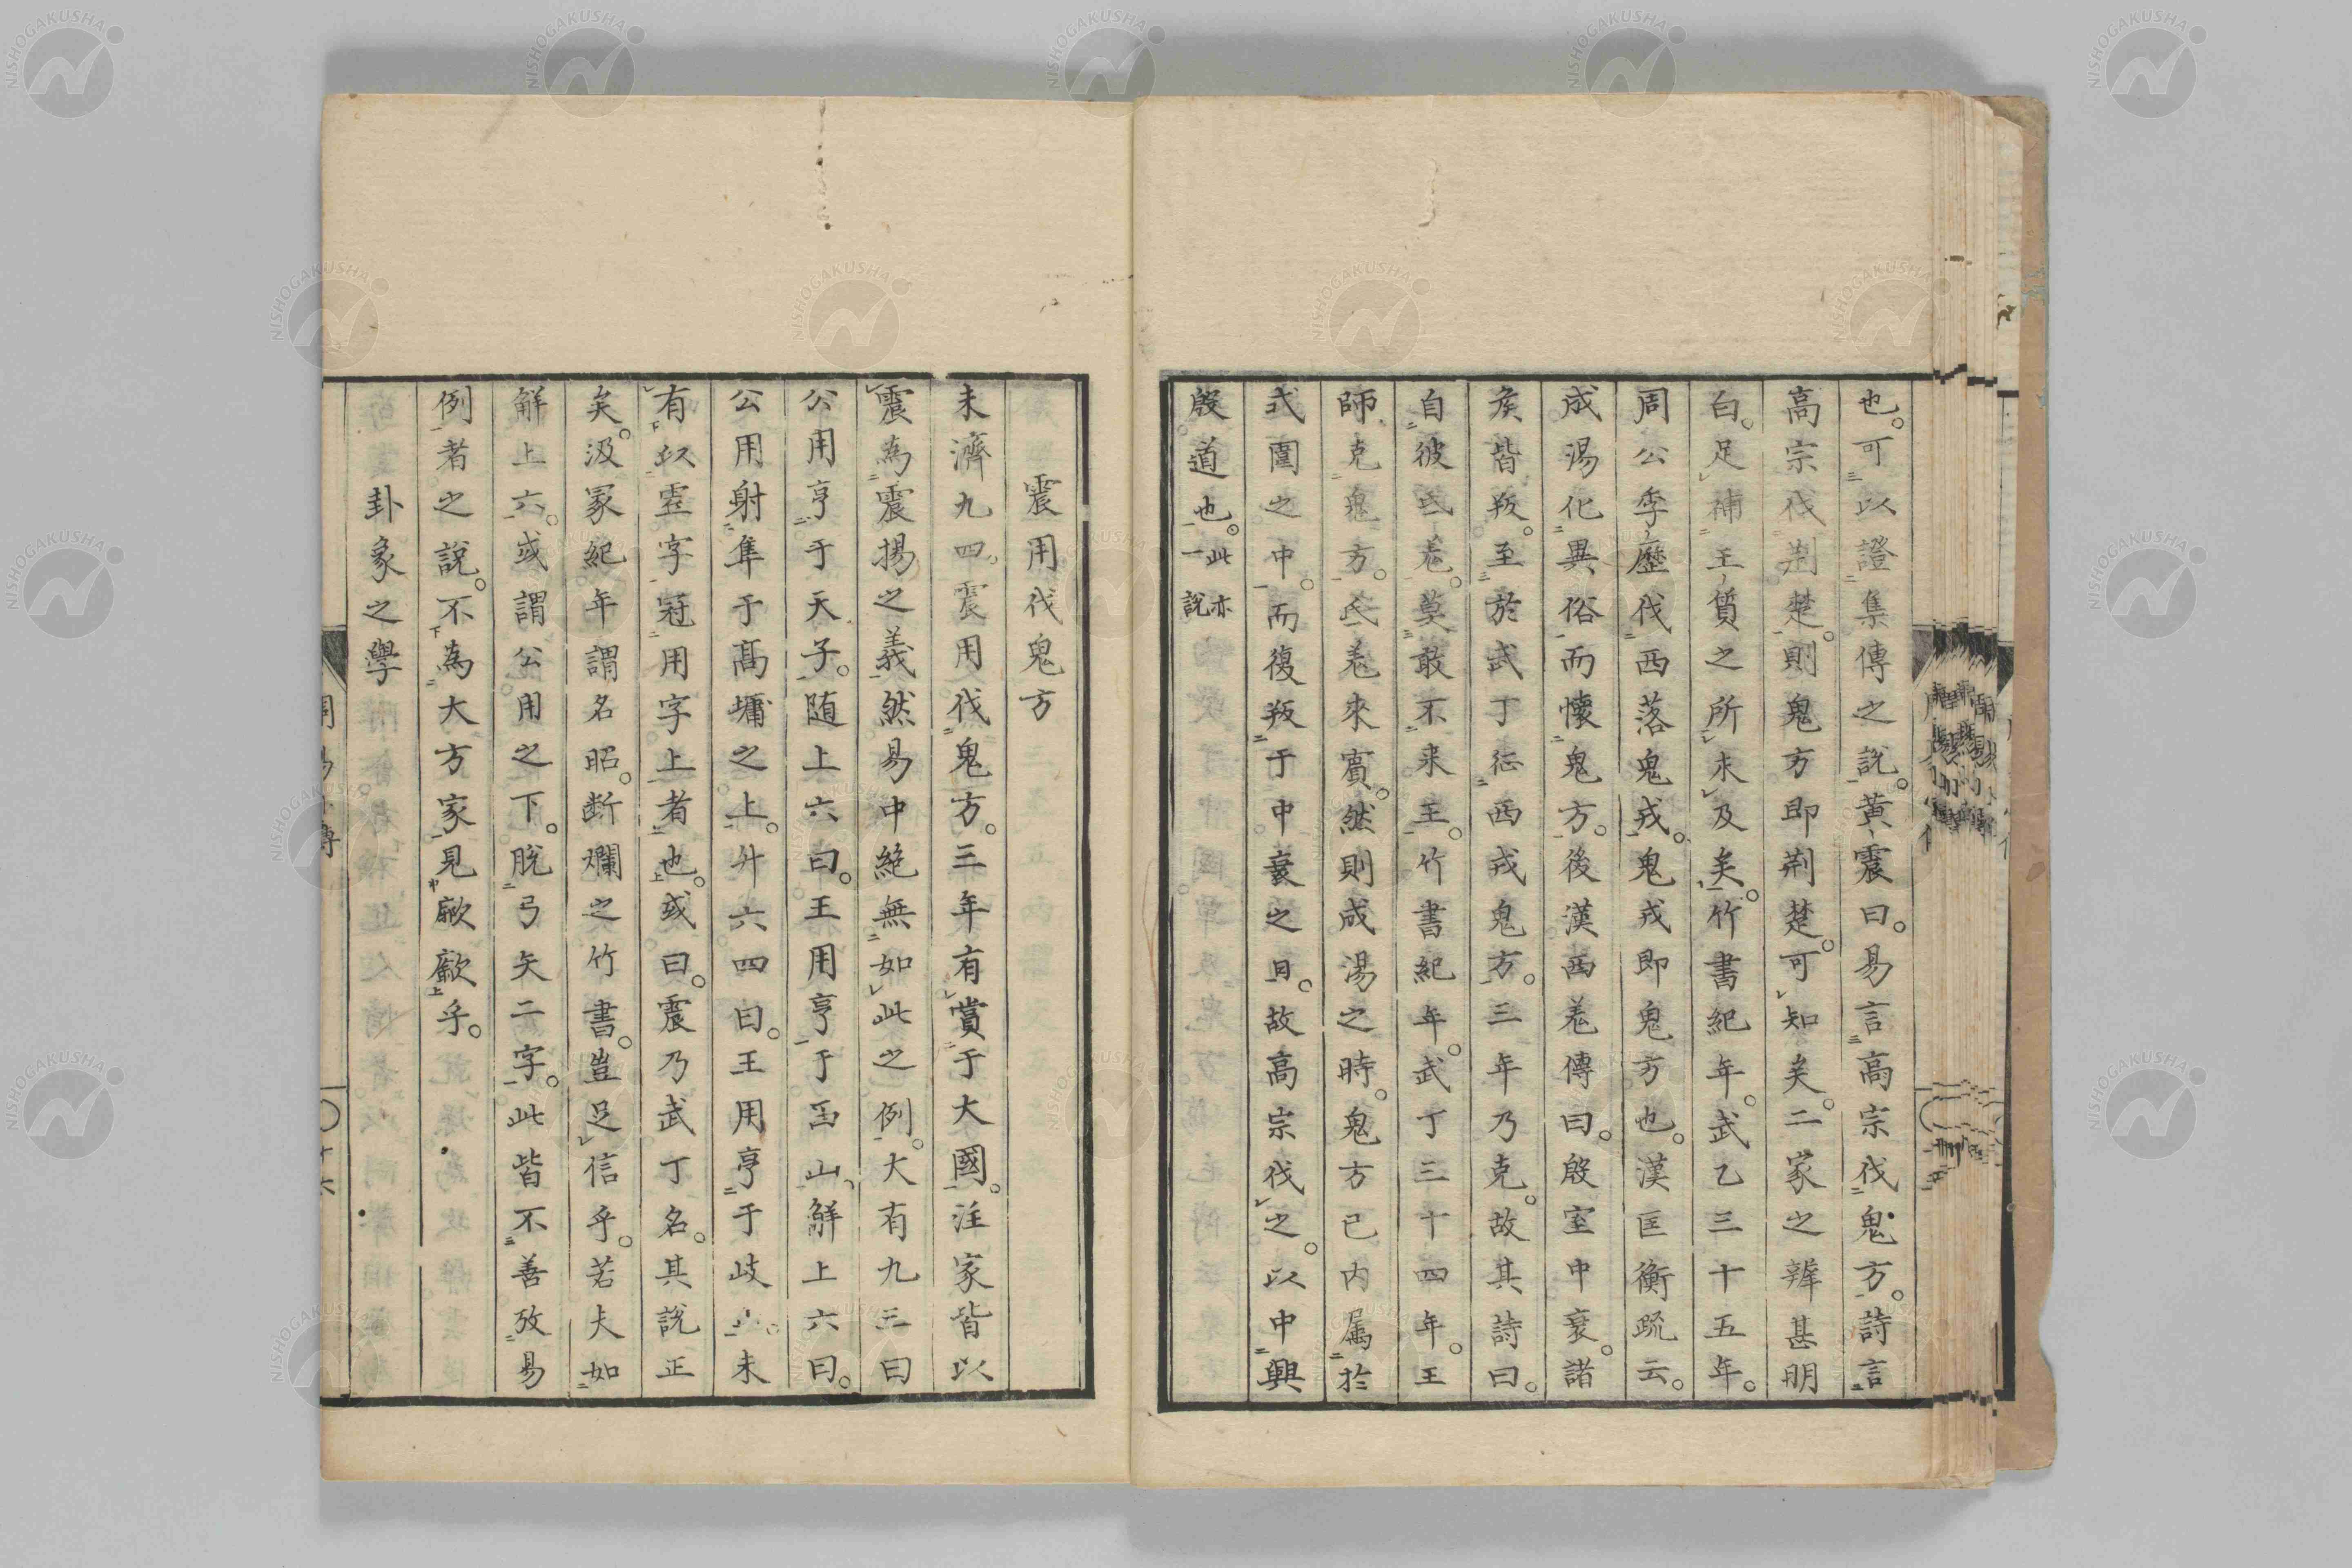 也。可以證集傳之說。黃震曰。易言高宗伐鬼方。詩言
高宗伐荆楚。則鬼方即荆楚。可知矣。二家之辨甚明
白。足補王質之所未及矣。竹書紀年。武乙三十五年。
周公季歷伐西落鬼戎。鬼戎即鬼方也。漢匡衡疏云。
成湯化異俗而懷鬼方。後漢西羌傳曰。殷室中衰。諸
矦皆叛。至於武丁征西戎鬼方。三年乃克。故其詩曰。
自彼氐羌。莫敢不来王。竹書紀年。武丁三十四年。王
師克鬼方。氐羌來賓。然則成湯之時。鬼方已内属於
式圍之中。而復叛于中衰之日。故高宗伐之。以中興
殷道也。此亦一說
震用伐鬼方
未濟九四。震用伐鬼方。三年有賞于大國。注家皆以
震為震揚之義。然易中絶無如此之例。大有九三曰
公用亨于天子。随上六曰。王用亨于西山。解上六曰。
公用射隼于髙墉之上。升六四曰。王用亨于岐山。未
有以虚字冠用字上者也。或曰。震乃武丁名。其說正
矣。汲冢紀年謂名昭。断爛之竹書。豈足信乎。若夫如
解上六。或謂公用之下。脫弓矢二字。此皆不善攷易
例者之說。不為大方家見厭厭乎。
卦象之學